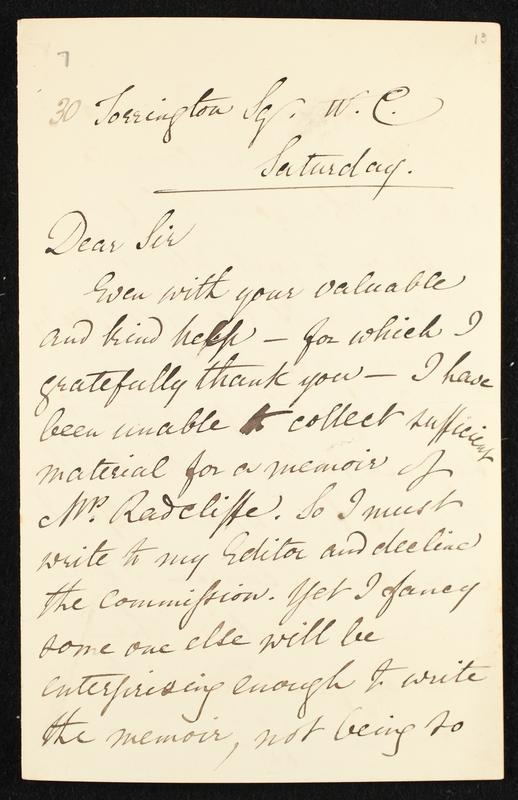 7
13
30 Torrington Sq. W. C.
Saturday.
Dear Sir
Even with your valuable
and kind help — for which I
gratefully thank you — I have
been unable to collect sufficient
material for a memoir of
Mrs. Radcliffe. So I must
write to my Editor and decline
the commission. Yet I fancy
some one else will be
enterprising enough to write
the memoir, not being so